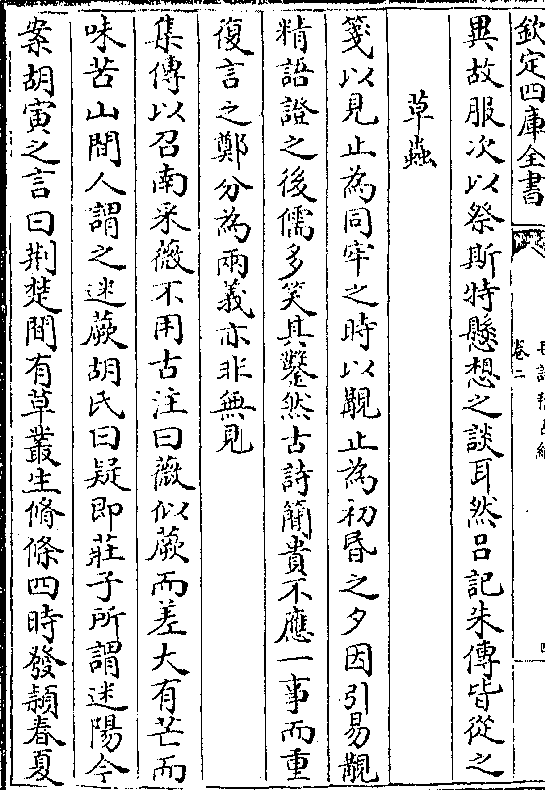 欽定四庫全書
卷二
異故服次以祭斯特懸想之談耳然呂記朱傳皆從之
草蟲
箋以見止為同牢之時以覯止為初昏之夕因引易覯
精語證之後儒多笑其鑿然古詩簡貴不應一事而重
復言之鄭分為兩義亦非無見
集傳以召南采薇不用古注曰薇似蕨而差大有芒而
味苦山間人謂之迷蕨胡氏曰疑即莊子所謂迷陽今
案胡寅之言曰荆楚間有草叢生脩條四時發穎春夏